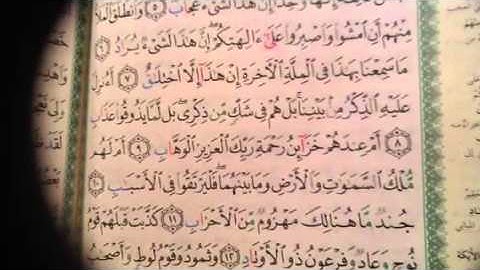 إِلَٰهًا وَٰحِدًا إِنَّ هَٰذَا لَشَىْءٌ عُجَابٌ ٥ وَٱنطَلَقَ ٱلْمَلَأُ
مِنْهُمْ أَنِ ٱمْشُوا۟ وَٱصْبِرُوا۟ عَلَىٰٓ ءَالِهَتِكُمْ إِنَّ هَٰذَا لَشَىْءٌ يُرَادُ ٦
مَا سَمِعْنَا بِهَٰذَا فِى ٱلْمِلَّةِ ٱلْءَاخِرَةِ إِنْ هَٰذَآ إِلَّا ٱخْتِلَٰقٌ ٧ أَءُنزِلَ
عَلَيْهِ ٱلذِّكْرُ مِنۢ بَيْنِنَا بَلْ هُمْ فِى شَكٍّ مِّن ذِكْرِى بَل لَّمَّا يَذُوقُوا۟ عَذَابِ
٨ أَمْ عِندَهُمْ خَزَآئِنُ رَحْمَةِ رَبِّكَ ٱلْعَزِيزِ ٱلْوَهَّابِ ٩ أَمْ لَهُم
مُّلْكُ ٱلسَّمَٰوَٰتِ وَٱلْأَرْضِ وَمَا بَيْنَهُمَا فَلْيَرْتَقُوا۟ فِى ٱلْأَسْبَٰبِ ١٠
جُندٌ مَّا هُنَالِكَ مَهْزُومٌ مِّنَ ٱلْأَحْزَابِ ١١ كَذَّبَتْ قَبْلَهُمْ قَوْمُ
نُوحٍ وَعَادٌ وَفِرْعَوْنُ ذُو ٱلْأَوْتَادِ ١٢ وَثَمُودُ وَقَوْمُ لُوطٍ وَأَصْحَٰبُ